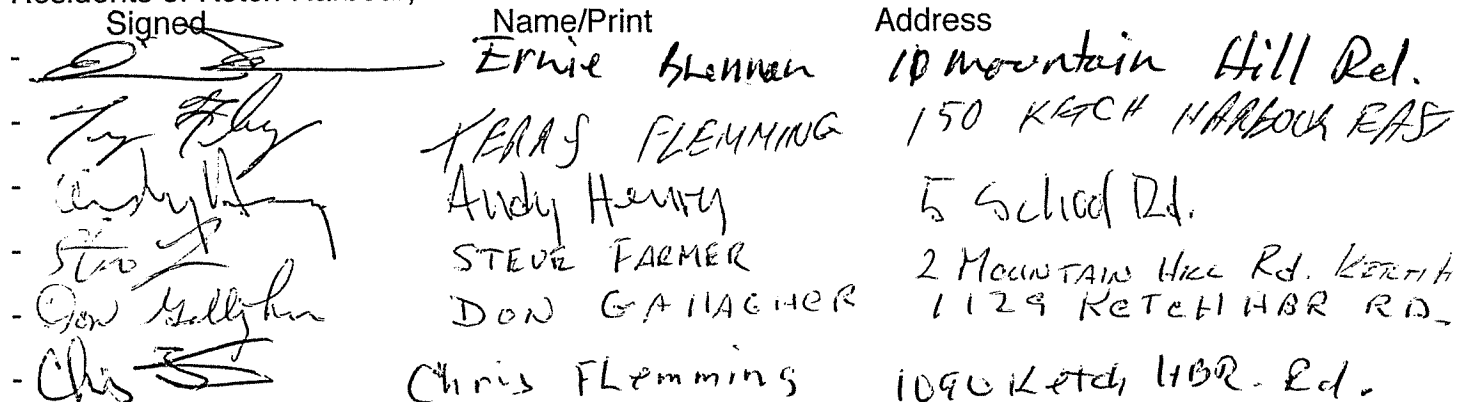 Residents of Ketch Harbour,
Signed Name/Print Address
- Ernie Brennan 10 mountain Hill Rd.
- TERRY FLEMMING 150 KETCH HARBOUR EAST
- Andy Henry Andy Henry 5 School Rd.
- STEVE FARMER 2 MOUNTAIN HILL Rd. KETCH
- Don Gallagher DON GALLAGHER 1129 KETCH HBR RD.
- Chris Chris FLemming 1090 Ketch HBR. Rd.